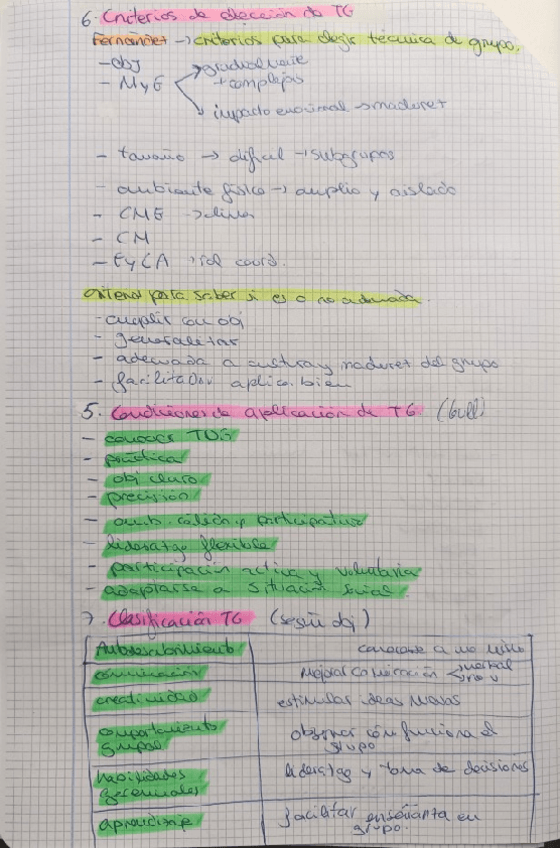 6. Criterios de elección de TG
Fernández → criterios para elegir técnica de grupo.
- obj
- MyE → gradualmente
+ complejas
→ impacto emocional → madurez
- tamaño → difícil → subgrupos
- ambiente físico → amplio y aislado
- CME → clima
- CM
- EyCA → rol coord.
criterios para saber si es o no adecuada.
- cumplir con obj
- generalizar
- adecuada a cultura y madurez del grupo
- facilitador aplica bien
5. Condiciones de aplicación de TG
- conocer TDG
- práctica
- obj claro
- precisión
- amb. cálido y participativo
- liderazgo flexible
- participación activa y voluntaria
- adaptarse a situación social
7. Clasificación TG (según obj)
Autodescubrimiento conocerse a uno mismo
comunicación Mejorar comunicación verbal
no v
creatividad estimular ideas nuevas
comportamiento grupos observar cómo funciona el
grupo
habilidades gerenciales liderazgo y toma de decisiones
aprendizaje facilitar enseñanza en
grupo.